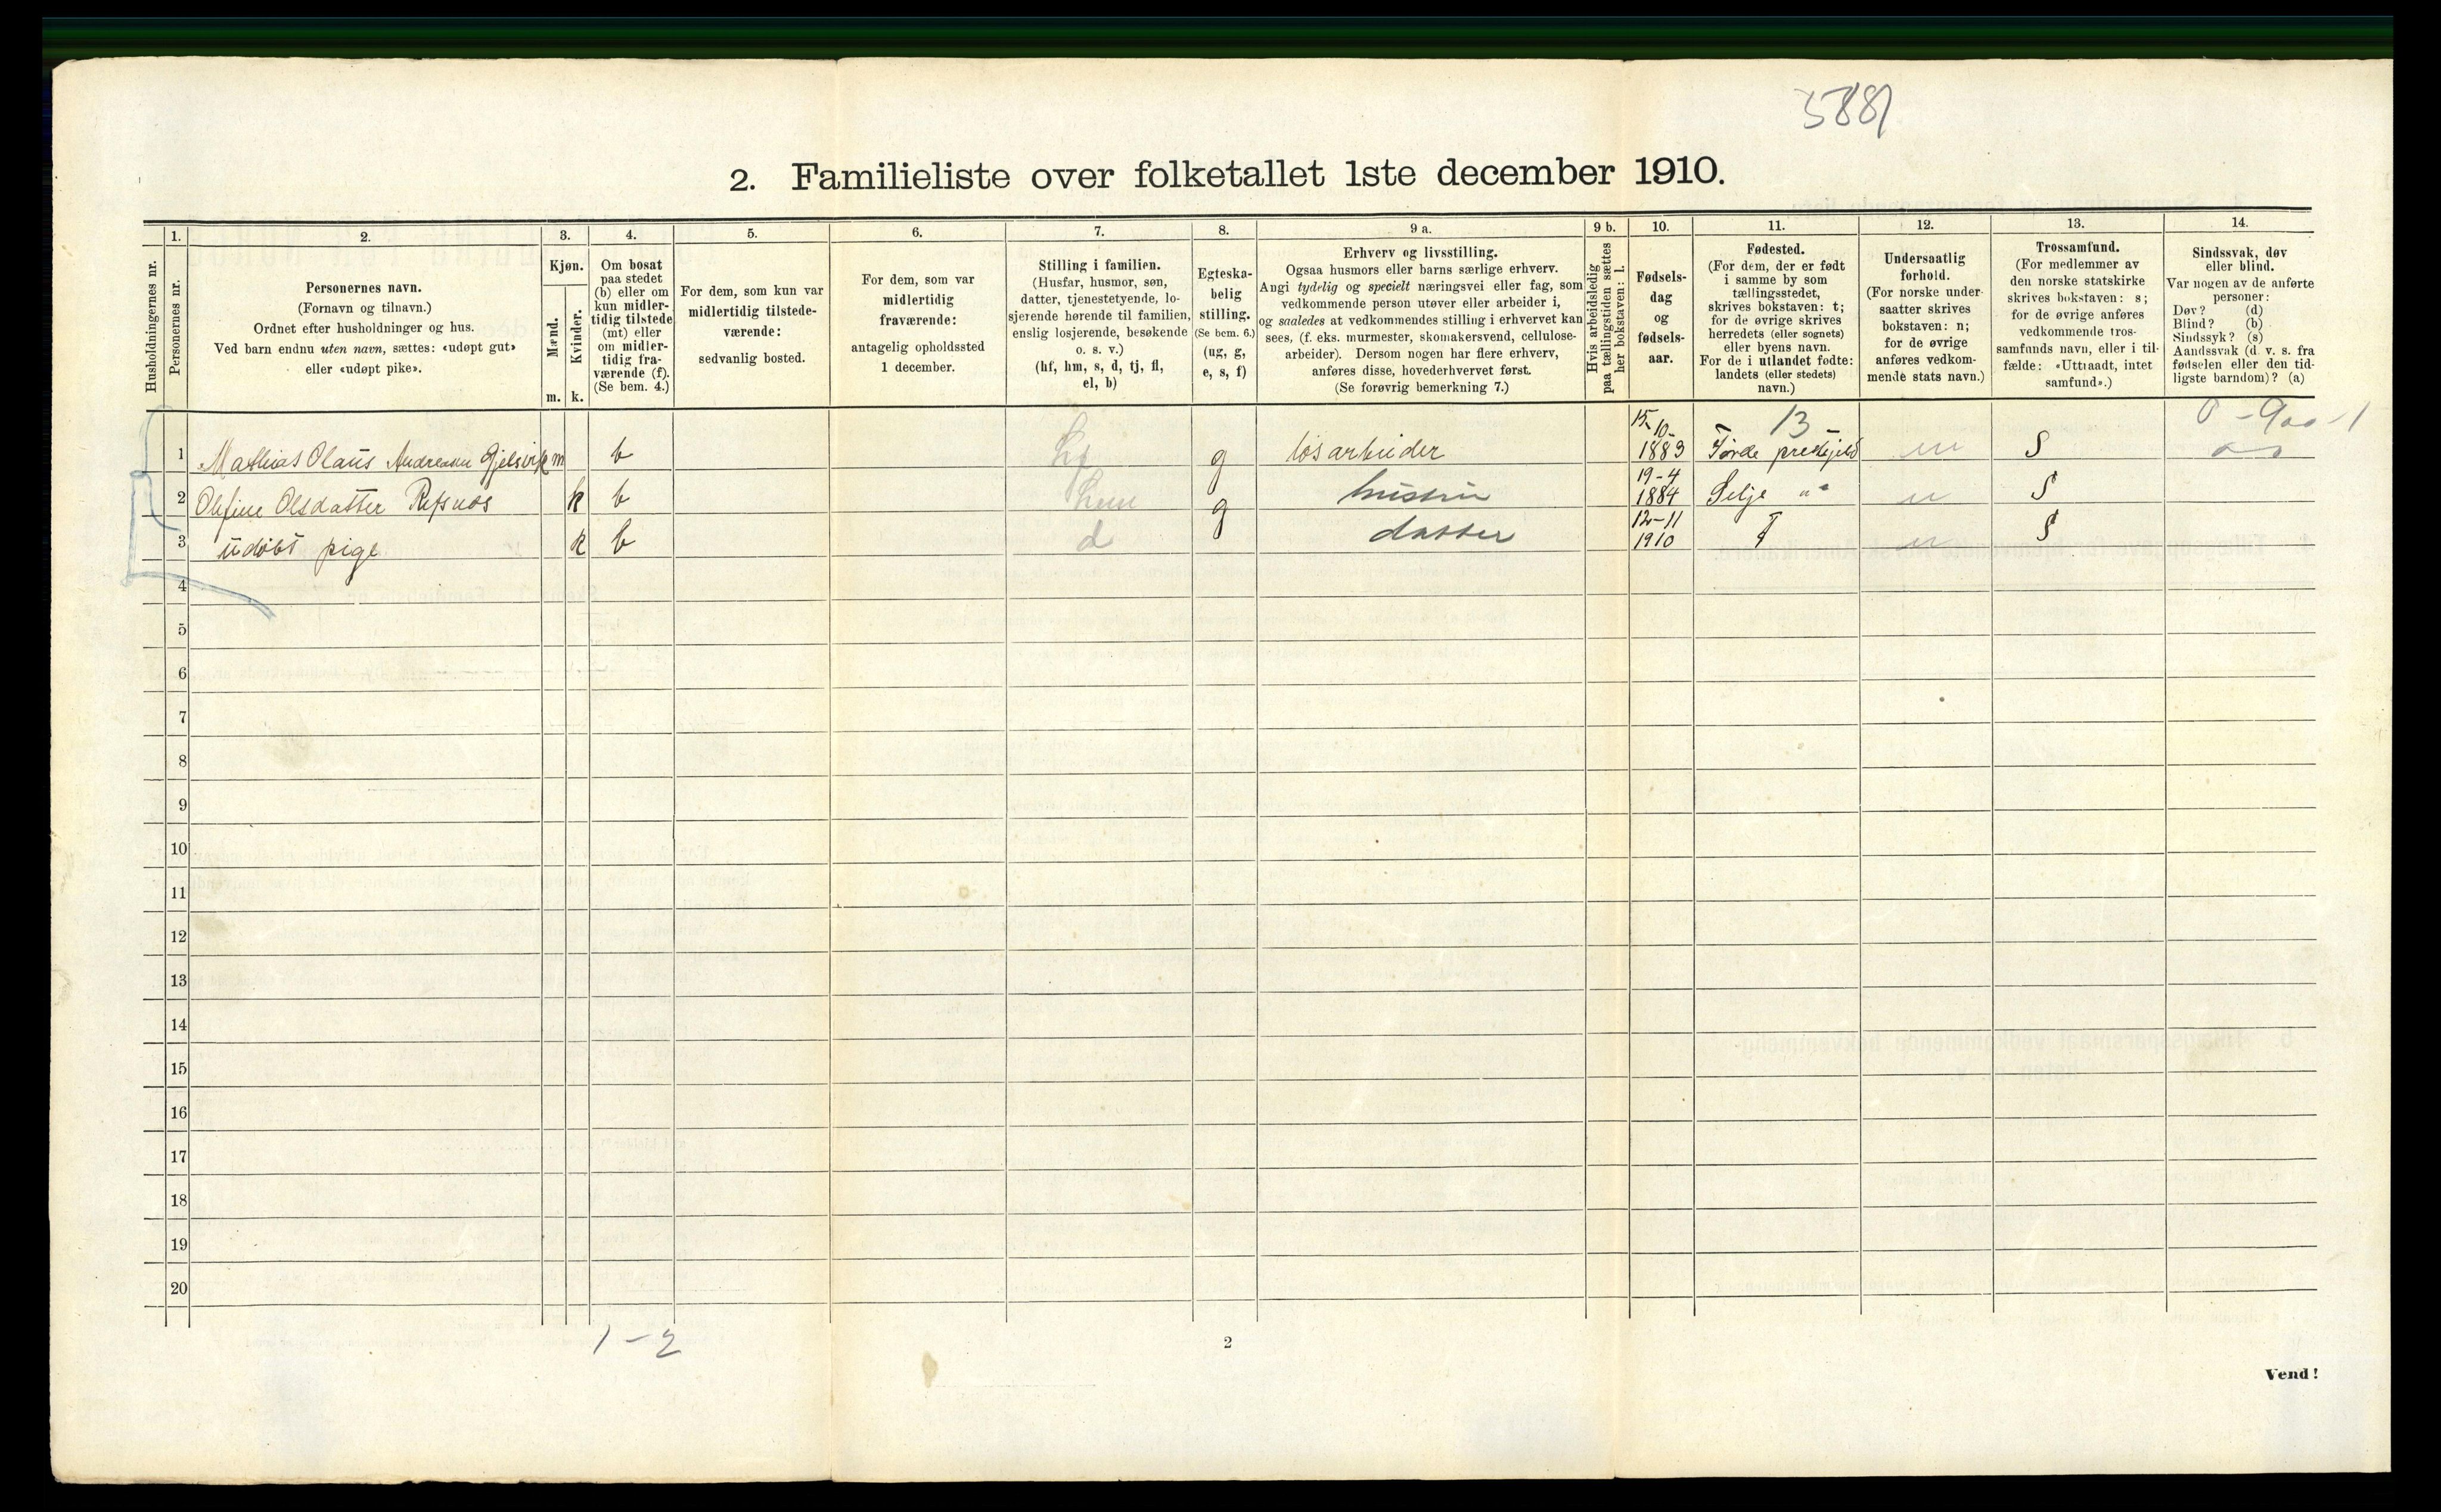 5881
2. Familieliste over folketallet 1ste december 1910.
Husholdningernes nr.
1.
Personernes nr.
2.
Personernes navn.
(Fornavn og tilnavn.)
Ordnet efter husholdninger og hus.
Ved barn endnu uten navn, sættes: «udøpt gut»
eller «udøpt pike».
3.
Kjøn.
Mænd.
Kvinder.
m. k.
4.
Om bosat
paa stedet
(b) eller om
kun midler-
tidig tilstede
(mt) eller
om midler-
tidig fra-
værende (f).
(Se bem. 4.)
5.
For dem, som kun var
midlertidig tilstede-
værende:
sedvanlig bosted.
6.
For dem, som var
midlertidig
fraværende:
antagelig opholdssted
1 december.
7.
Stilling i familien.
(Husfar, husmor, søn,
datter, tjenestetyende, lo-
sjerende hørende til familien,
enslig losjerende, besøkende
o. s. v.)
(hf, hm, s, d, tj, fl,
el, b)
8.
Egteska-
belig
stilling.
(Se bem. 6.)
(ug, g,
e, s, f)
9 a.
Erhverv og livsstilling.
Ogsaa husmors eller barns særlige erhverv.
Angi tydelig og specielt næringsvei eller fag, som
vedkommende person utøver eller arbeider i,
og saaledes at vedkommendes stilling i erhvervet kan
sees, (f. eks. murmester, skomakersvend, cellulose-
arbeider). Dersom nogen har flere erhverv,
anføres disse, hovederhvervet først.
(Se forøvrig bemerkning 7.)
9 b.
Hvis arbeidsledig
paa tællingstiden sættes
her bokstaven: l.
10.
Fødsels-
dag
og
fødsels-
aar.
11.
Fødested.
(For dem, der er født
i samme by som
tællingsstedet,
skrives bokstaven: t;
for de øvrige skrives
herredets (eller sognets)
eller byens navn.
For de i utlandet fødte:
landets (eller stedets)
navn.)
12.
Undersaatlig
forhold.
(For norske under-
saatter skrives
bokstaven: n;
for de øvrige
anføres vedkom-
mende stats navn.)
13.
Trossamfund.
(For medlemmer av
den norske statskirke
skrives bokstaven: s;
for de øvrige anføres
vedkommende tros-
samfunds navn, eller i til-
fælde: «Uttraadt, intet
samfund».)
14.
Sindssvak, døv
eller blind.
Var nogen av de anførte
personer:
Døv? (d)
Blind? (b)
Sindssyk? (s)
Aandssvak (d. v. s. fra
fødselen eller den tid-
ligste barndom)? (a)
13
1 Mathias Olaus Andreasen Gjelsvik m b hf g løsarbeider 15-10-1883 Førde prestgjeld n S
2 Olefine Olsdatter Refsnos k b hm g hustru 19-4 1884 Selje " n S
3 udøbt pige k b d datter 12-11 1910 T n S
4
5
6
7
8
9
10
11
12
13
14
15
16
17
18
19
20
1-2
2
Vend!